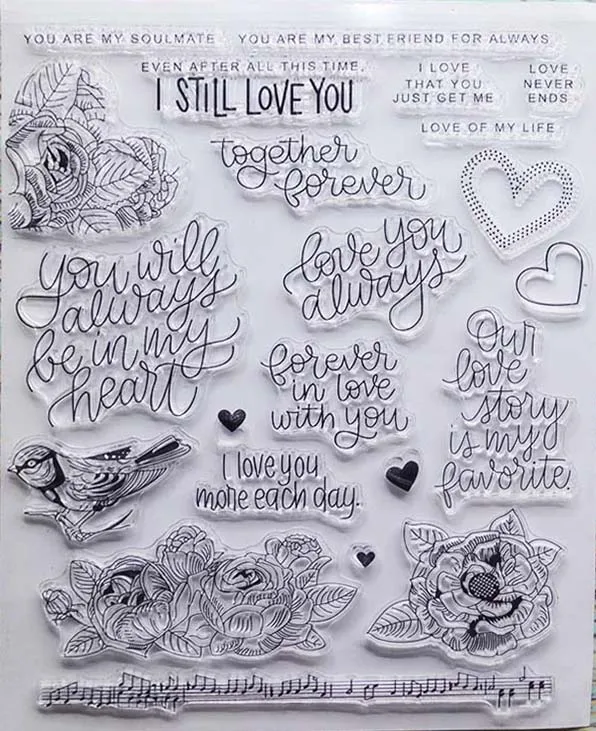 YOU ARE MY SOULMATE
YOU ARE MY BEST FRIEND FOR ALWAYS
EVEN AFTER ALL THIS TIME,
I STILL LOVE YOU
I LOVE
THAT YOU
JUST GET ME
LOVE
NEVER
ENDS
LOVE OF MY LIFE
together
forever
you will
always
be in my
heart
love you
always
forever
in love
with you
Our
love
story
is my
favorite.
I love you
more each day.